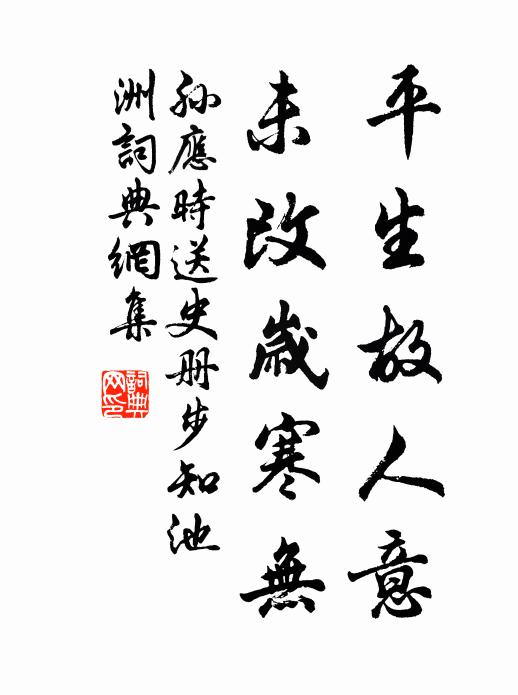 平生故人意
未改歲寒無
孙應時送史册步知池
洲詞典網集
詞典
网印